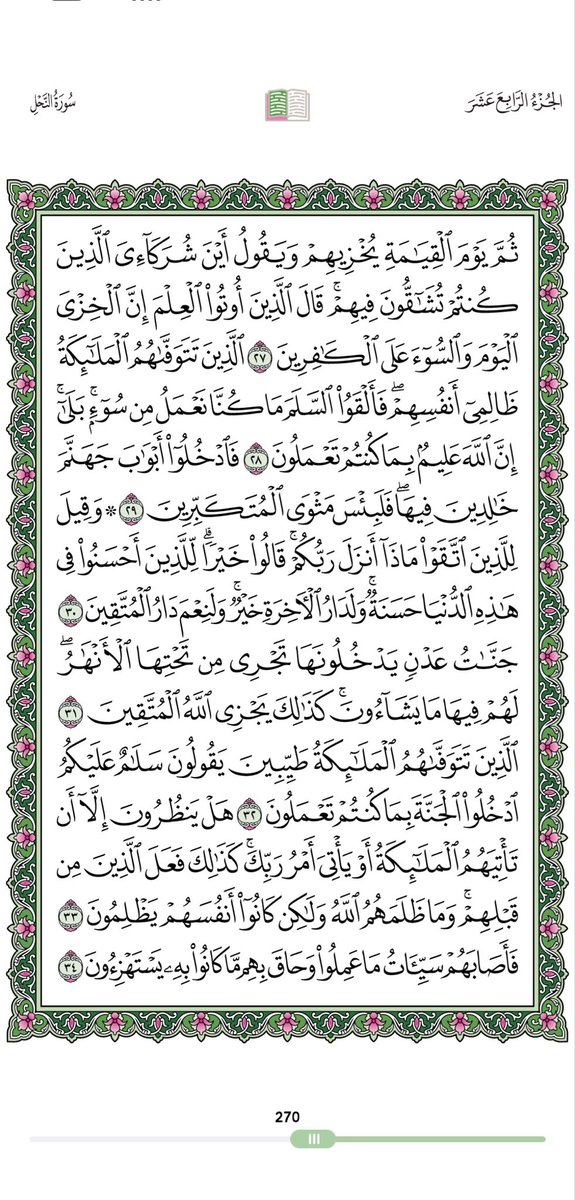 الجُزْءُ الرَّابِعَ عَشَرَ
سُورَةُ النَّحْلِ
ثُمَّ يَوْمَ ٱلْقِيَٰمَةِ يُخْزِيهِمْ وَيَقُولُ أَيْنَ شُرَكَآءِىَ ٱلَّذِينَ
كُنتُمْ تُشَٰٓقُّونَ فِيهِمْ ۚ قَالَ ٱلَّذِينَ أُوتُوا۟ ٱلْعِلْمَ إِنَّ ٱلْخِزْىَ
ٱلْيَوْمَ وَٱلسُّوٓءَ عَلَى ٱلْكَٰفِرِينَ ٢٧ ٱلَّذِينَ تَتَوَفَّىٰهُمُ ٱلْمَلَٰٓئِكَةُ
ظَالِمِىٓ أَنفُسِهِمْ ۖ فَأَلْقَوُا۟ ٱلسَّلَمَ مَا كُنَّا نَعْمَلُ مِن سُوٓءٍۭ ۚ بَلَىٰٓ ۚ
إِنَّ ٱللَّهَ عَلِيمٌۢ بِمَا كُنتُمْ تَعْمَلُونَ ٢٨ فَٱدْخُلُوٓا۟ أَبْوَٰبَ جَهَنَّمَ
خَٰلِدِينَ فِيهَا ۖ فَلَبِئْسَ مَثْوَى ٱلْمُتَكَبِّرِينَ ٢٩ ۞ وَقِيلَ
لِلَّذِينَ ٱتَّقَوْا۟ مَاذَآ أَنزَلَ رَبُّكُمْ ۚ قَالُوا۟ خَيْرًا ۗ لِّلَّذِينَ أَحْسَنُوا۟ فِى
هَٰذِهِ ٱلدُّنْيَا حَسَنَةٌ ۚ وَلَدَارُ ٱلْءَاخِرَةِ خَيْرٌ ۚ وَلَنِعْمَ دَارُ ٱلْمُتَّقِينَ ٣٠
جَنَّٰتُ عَدْنٍ يَدْخُلُونَهَا تَجْرِى مِن تَحْتِهَا ٱلْأَنْهَٰرُ ۖ
لَهُمْ فِيهَا مَا يَشَآءُونَ ۚ كَذَٰلِكَ يَجْزِى ٱللَّهُ ٱلْمُتَّقِينَ ٣١
ٱلَّذِينَ تَتَوَفَّىٰهُمُ ٱلْمَلَٰٓئِكَةُ طَيِّبِينَ ۙ يَقُولُونَ سَلَٰمٌ عَلَيْكُمُ
ٱدْخُلُوا۟ ٱلْجَنَّةَ بِمَا كُنتُمْ تَعْمَلُونَ ٣٢ هَلْ يَنظُرُونَ إِلَّآ أَن
تَأْتِيَهُمُ ٱلْمَلَٰٓئِكَةُ أَوْ يَأْتِىَ أَمْرُ رَبِّكَ ۚ كَذَٰلِكَ فَعَلَ ٱلَّذِينَ مِن
قَبْلِهِمْ ۚ وَمَا ظَلَمَهُمُ ٱللَّهُ وَلَٰكِن كَانُوٓا۟ أَنفُسَهُمْ يَظْلِمُونَ ٣٣
فَأَصَابَهُمْ سَيِّـَٔاتُ مَا عَمِلُوا۟ وَحَاقَ بِهِم مَّا كَانُوا۟ بِهِۦ يَسْتَهْزِءُونَ ٣٤
270